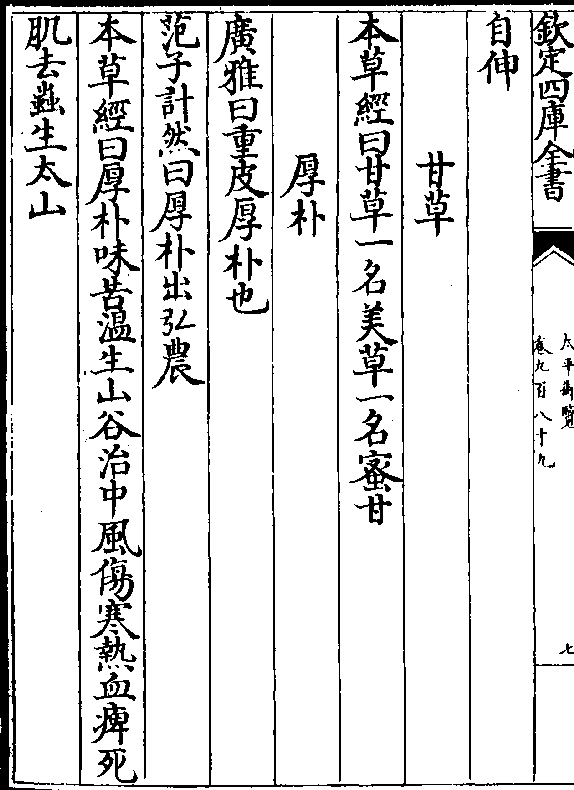 欽定四庫全書
太平御覽
卷九百八十九
七
自伸
甘草
本草經曰甘草一名美草一名蜜甘
厚朴
廣雅曰重皮厚朴也
范子計然曰厚朴出弘農
本草經曰厚朴味苦温生山谷治中風傷寒熱血痺死
肌去蟲生太山